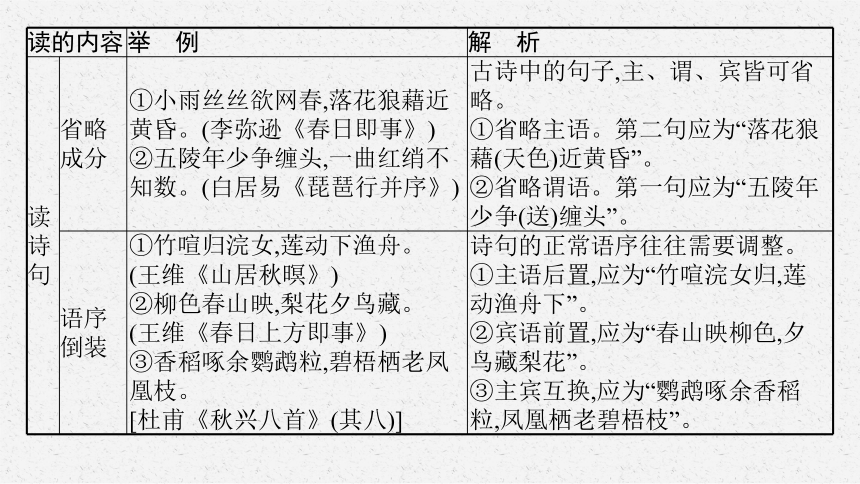 读的内容 举 例 解 析
读
诗
句
省略
成分
①小雨丝丝欲网春,落花狼藉近
黄昏。(李弥逊《春日即事》)
②五陵年少争缠头,一曲红绡不
知数。(白居易《琵琶行并序》)
古诗中的句子,主、谓、宾皆可省
略。
①省略主语。第二句应为“落花狼
藉(天色)近黄昏”。
②省略谓语。第一句应为“五陵年
少争(送)缠头”。
语序
倒装
①竹喧归浣女,莲动下渔舟。
(王维《山居秋暝》)
②柳色春山映,梨花夕鸟藏。
(王维《春日上方即事》)
③香稻啄余鹦鹉粒,碧梧栖老凤
凰枝。
[杜甫《秋兴八首》(其八)]
诗句的正常语序往往需要调整。
①主语后置,应为“竹喧浣女归,莲
动渔舟下”。
②宾语前置,应为“春山映柳色,夕
鸟藏梨花”。
③主宾互换,应为“鹦鹉啄余香稻
粒,凤凰栖老碧梧枝”。